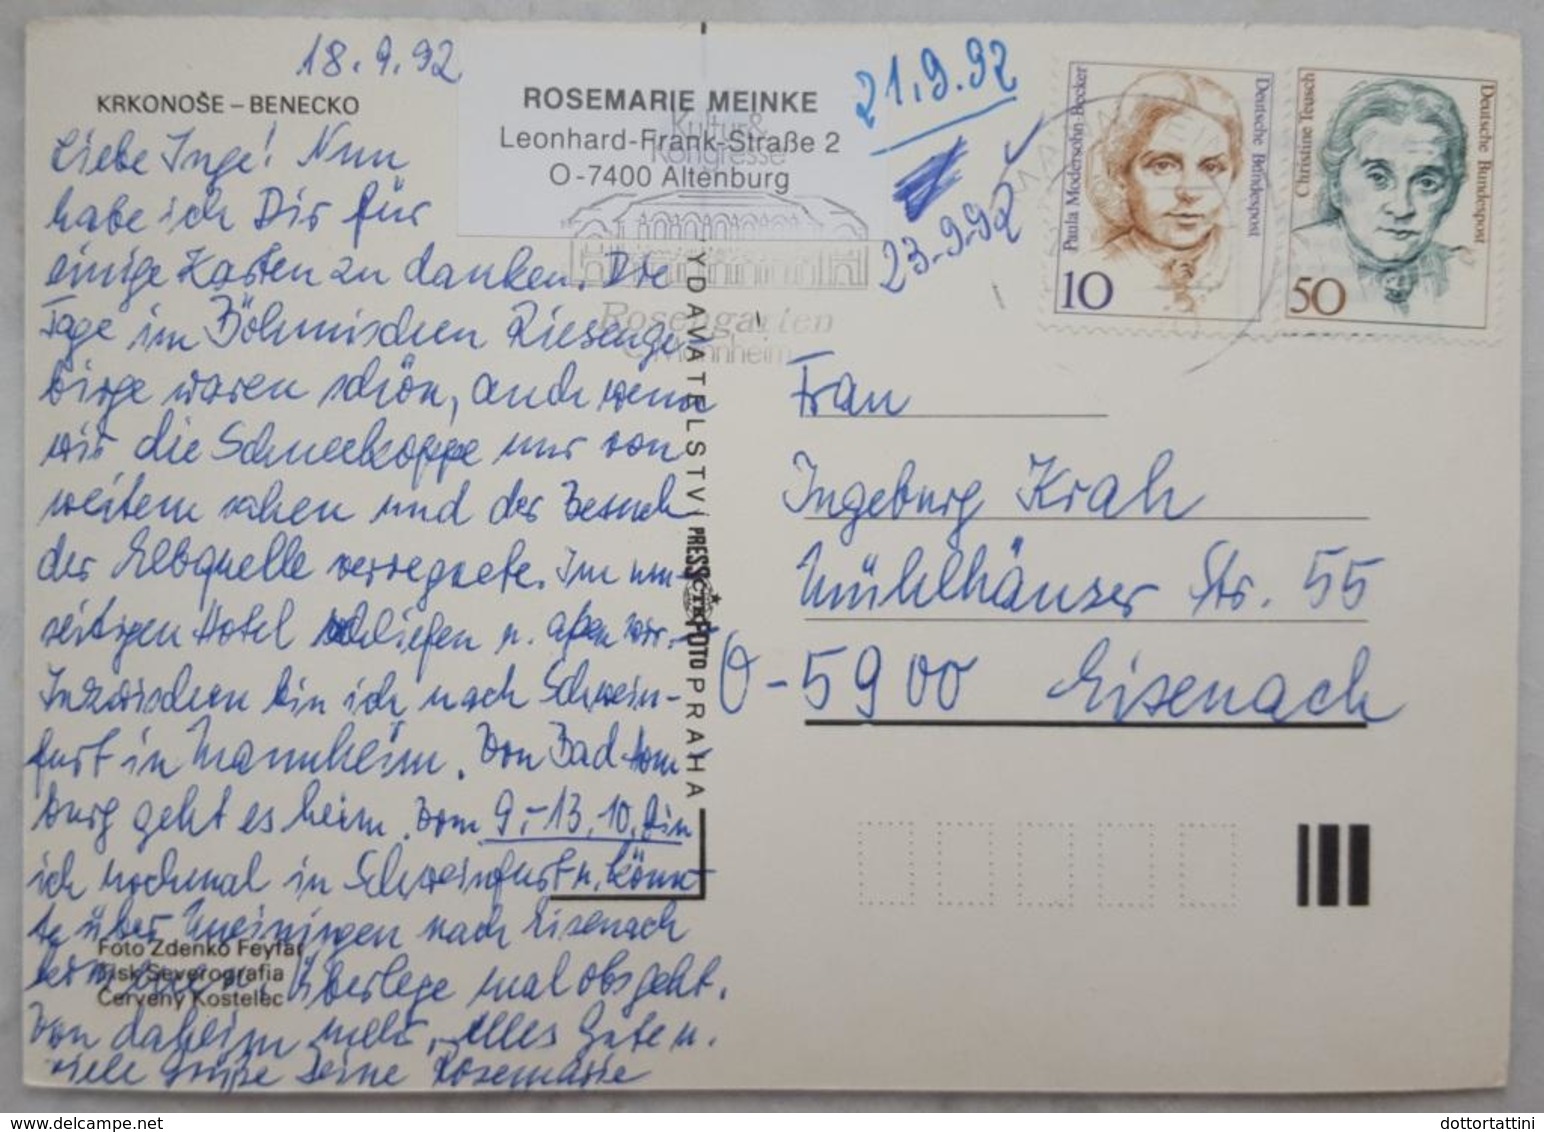 18.9.92
KRKONOŠE – BENECKO
ROSEMARIE MEINKE
Leonhard-Frank-Straße 2
O-7400 Altenburg
21.9.92
23.9.92
Kultur &
Kongresse
Rosengarten
Mannheim
Paula Modersohn-Becker
Deutsche Bundespost
10
Christine Teusch
Deutsche Bundespost
50
Liebe Inge! Nun
habe ich Dir für
einige Karten zu danken. Die
Tage im Böhmischen Riesenge-
birge waren schön, auch wenn
wir die Schneekoppe nur von
weitem sahen und der Besuch
der Elbquelle verregnete. Im um-
seitigen Hotel schliefen u. aßen wir.
Inzwischen bin ich nach Schwein-
furt in Mannheim. Von Bad Hom-
burg geht es heim. Vom 9.-13.10. bin
ich nochmal in Schweinfurt u. könn-
te über Meiningen nach Eisenach
kommen. Überlege mal obs geht.
Von daheim mehr. Alles Gute u.
viele Grüße Deine Rosemarie
Foto Zdenko Feyfar
Tisk Severografia
Červený Kostelec
VYDAVATELSTVÍ PRESSFOTO PRAHA
ČTK
Frau
Ingeburg Krah
Mühlhäuser Str. 55
O-5900 Eisenach
dottortattini